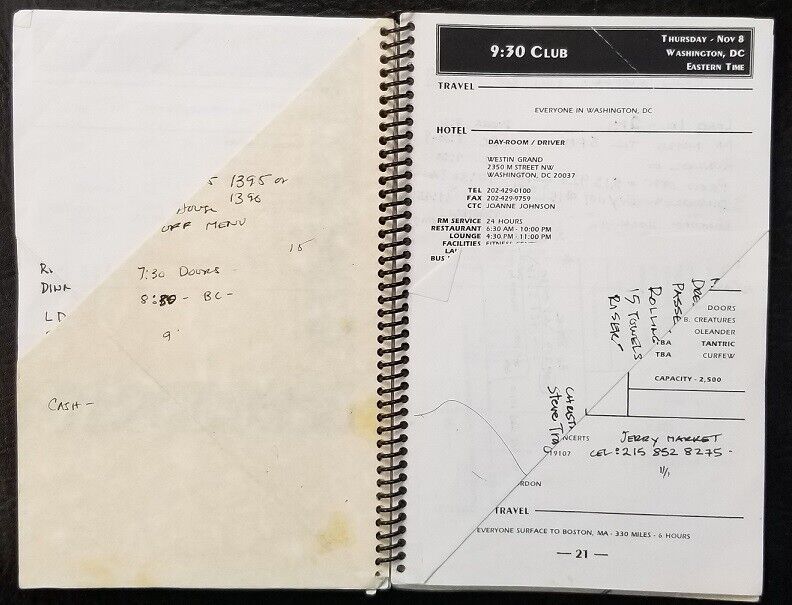 5 1395 or
HOUSE 1396
OFF MENU
15
7:30 DOORS -
DINN
8:30 - BC -
LD
9
CASH -
9:30 CLUB
THURSDAY - NOV 8
WASHINGTON, DC
EASTERN TIME
TRAVEL
EVERYONE IN WASHINGTON, DC
HOTEL
DAY-ROOM / DRIVER
WESTIN GRAND
2350 M STREET NW
WASHINGTON, DC 20037
TEL 202-429-0100
FAX 202-429-9759
CTC JOANNE JOHNSON
RM SERVICE 24 HOURS
RESTAURANT 6:30 AM - 10:00 PM
LOUNGE 4:30 PM - 11:00 PM
FACILITIES FITNESS CENT
LAU
BUS
DRE
PASSE
ROLLING
15 TOWELS
RISER
DOORS
B. CREATURES
OLEANDER
TBA TANTRIC
TBA CURFEW
CAPACITY - 2,500
CHRISTA
Steve Tra
NCERTS
19107
JERRY MARKET
CEL: 215 852 8275 -
11/1
RDON
TRAVEL
EVERYONE SURFACE TO BOSTON, MA - 330 MILES - 6 HOURS
— 21 —